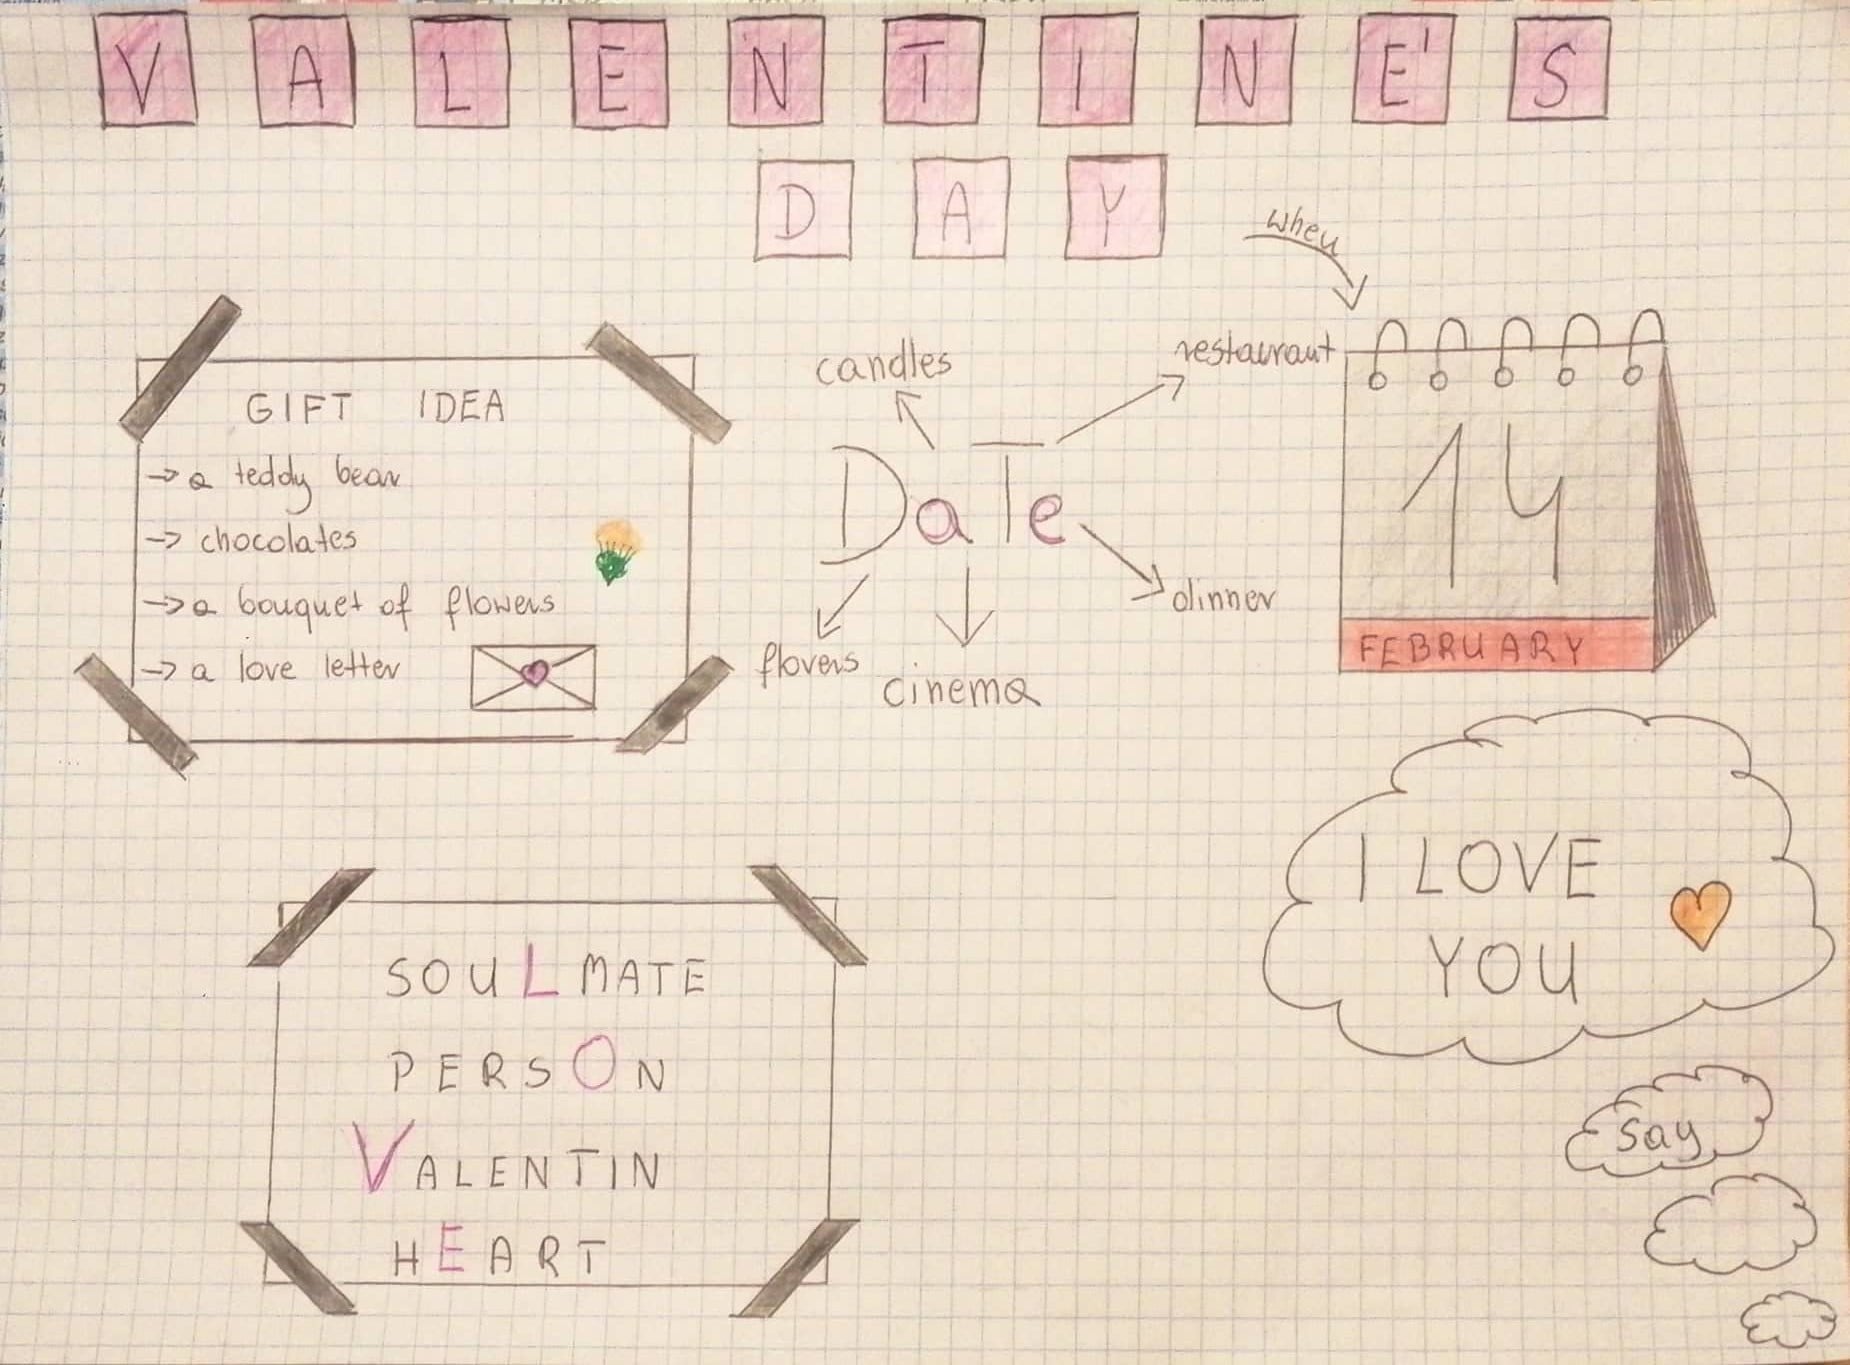 VALENTINE'S
DAY
when
GIFT IDEA
→ a teddy bear
→ chocolates
→ a bouquet of flowers
→ a love letter
candles
restaurant
DaTe
dinner
flovers
cinema
14
FEBRUARY
I LOVE
YOU
say
SOULMATE
PERSON
VALENTIN
HEART